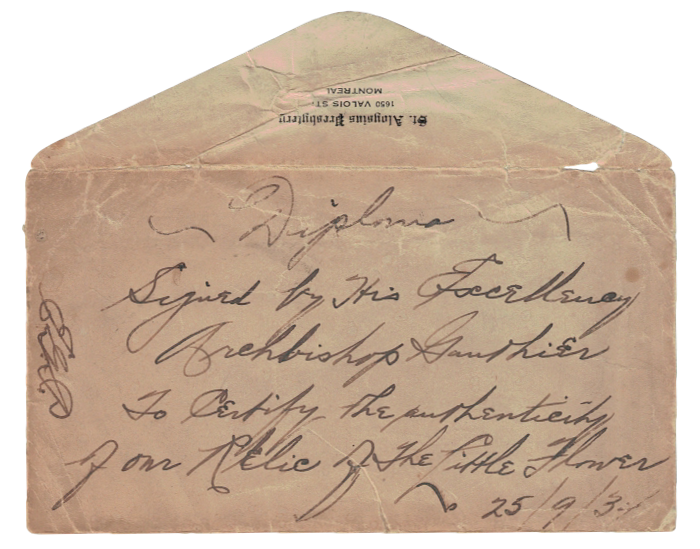 St. Aloysius Presbytery
1650 VALOIS ST.
MONTREAL
Diploma
Signed by His Excellency
Archbishop Gauthier
To Certify the authenticity
of our Relic of The Little Flower
25/9/3